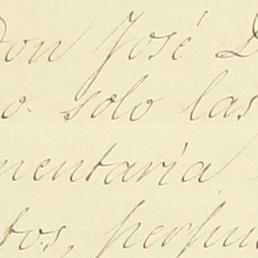 Don José D
o solo las
mentaria
tos, perju